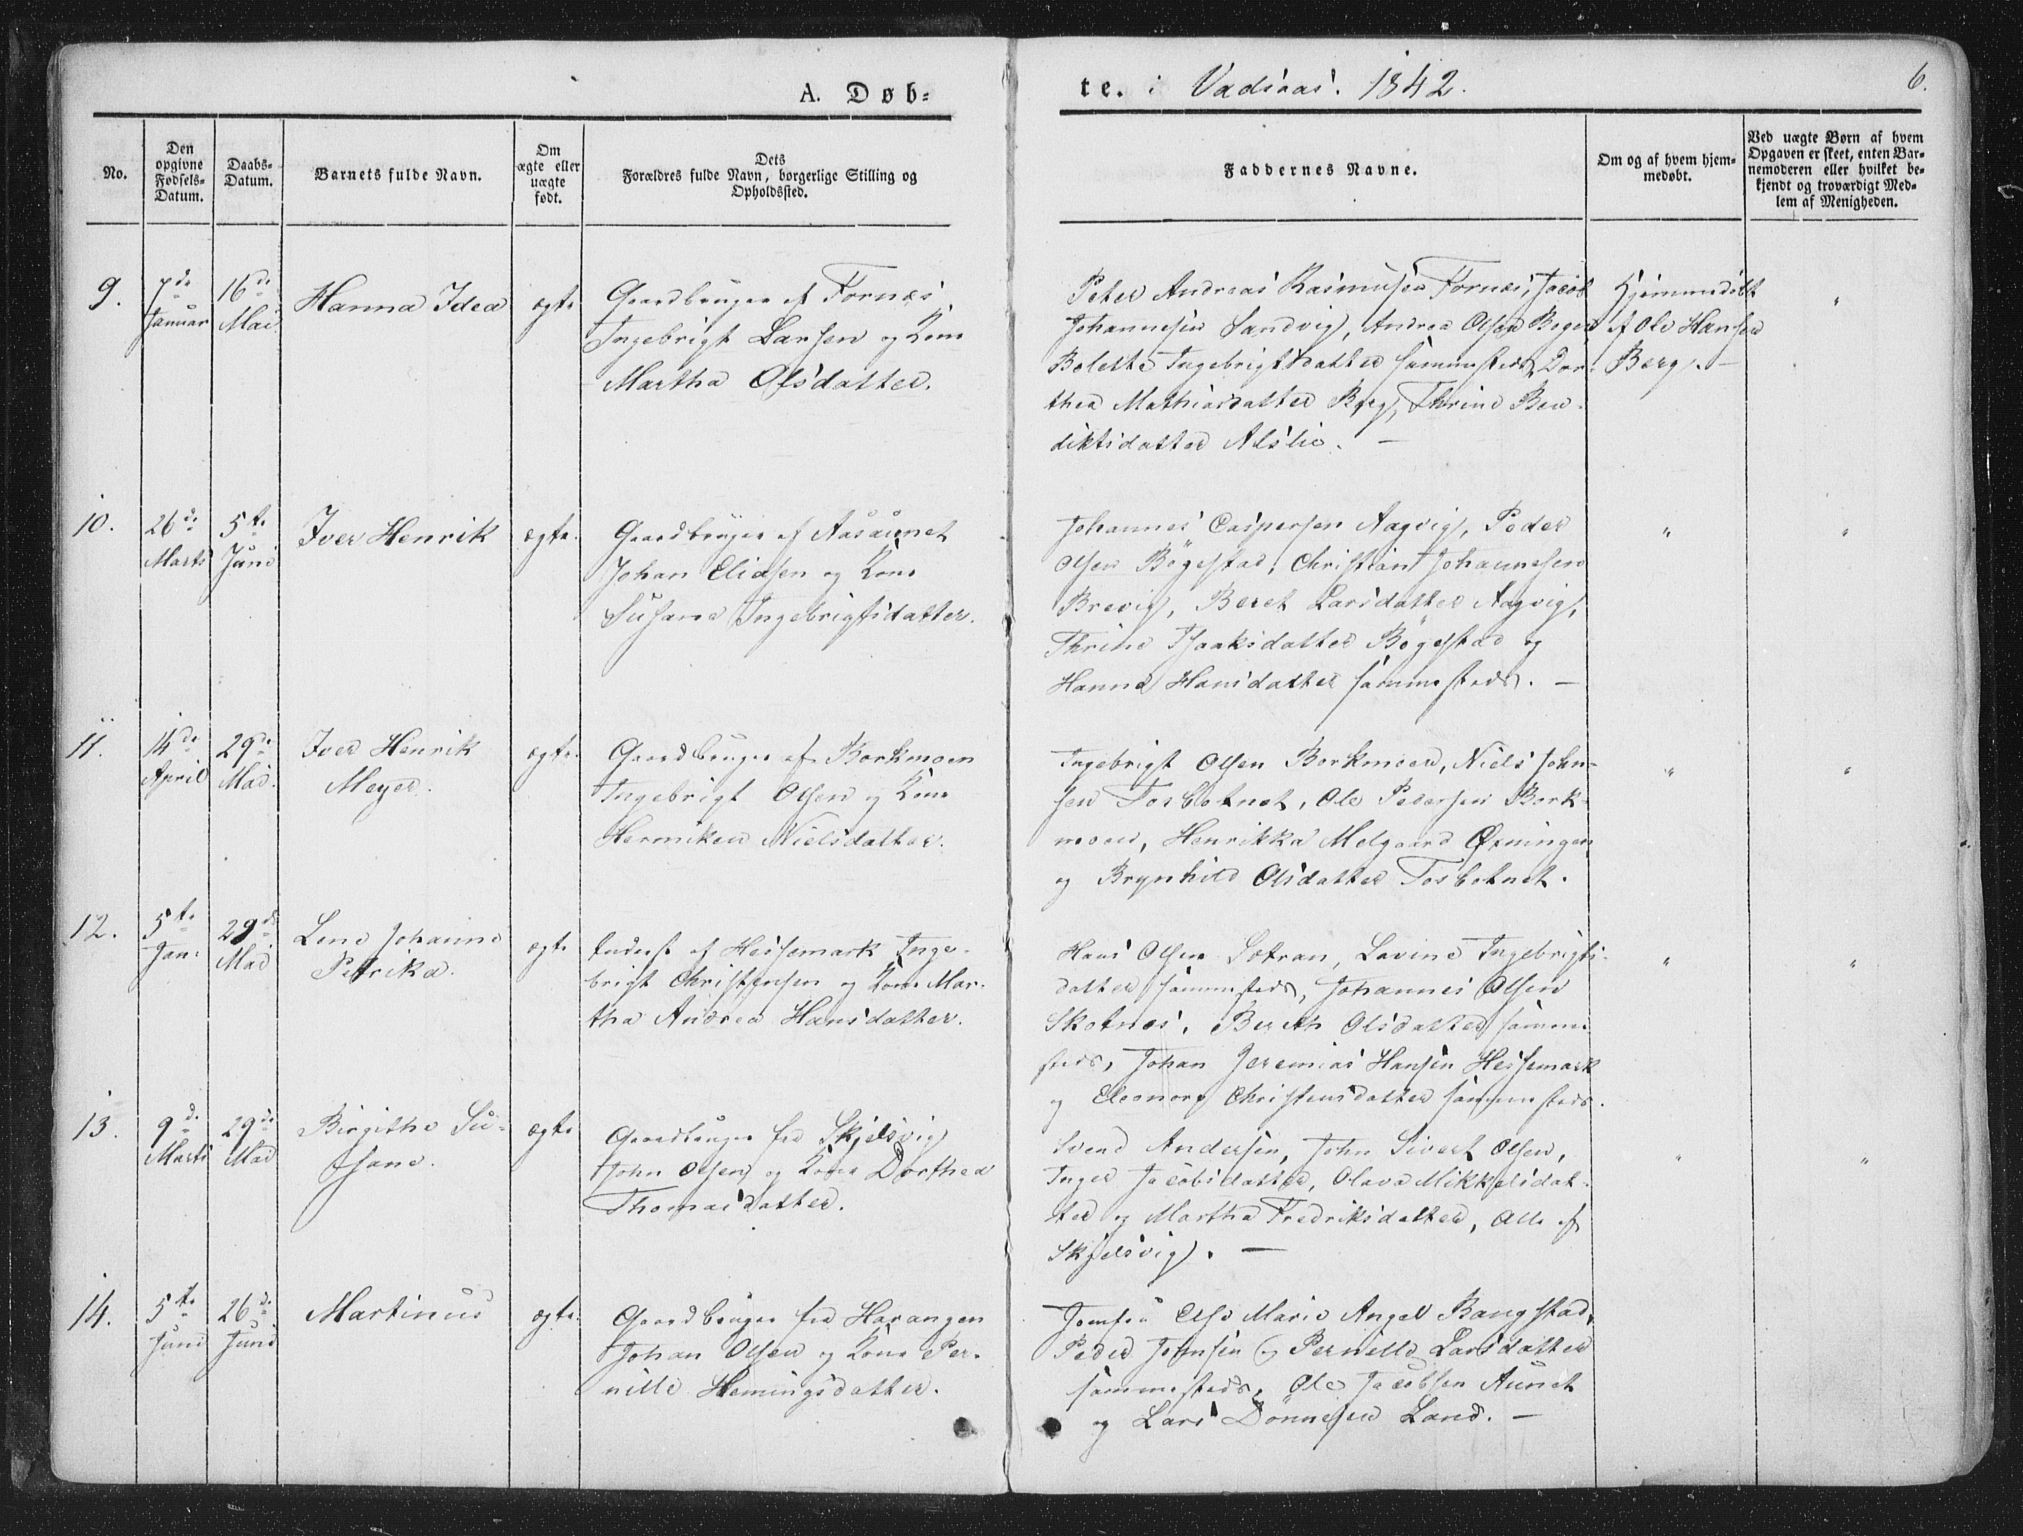 A. Døb=
te. i Vadsaas. 1842.
6.
No.
Den opgivne Fødsels-Datum.
Daabs-Datum.
Barnets fulde Navn.
Om ægte eller uægte født.
Dets Forældres fulde Navn, borgerlige Stilling og Opholdssted.
Faddernes Navne.
Om og af hvem hjemmedøbt.
Ved uægte Børn af hvem Opgaven er skeet, enten Barnemoderen eller hvilket bekjendt og troværdigt Medlem af Menigheden.
9.
7de Januar
16de Mai
Hanna Idea
ægte
Gaardbruger af Fornæs,
Ingebrigt Larsen og Kone
Martha Olsdatter.
Peter Andreas Rasmusen Fornæs, Jacob
Johannesen Sandvig, Andrea Olsen
Bolette Ingebrigtsdatter sammesteds, Dor-
thea Mathiasdatter Berg, Thrine Ben-
diktsdatter Aslie. —
Hjemmedøbt
af Ole Hansen
Berg. —
"
10.
26de Marts
5te Juni
Iver Henrik
ægte.
Gaardbruger af Aasaunet
Johan Eliasen og Kone
Susane Ingebrigtsdatter.
Johannes Caspersen Aagvig, Peder
Olsen Bøgestad, Christian Johannesen
Brevig, Beret Larsdatter Aagvig,
Thrine Isaaksdatter Bøgestad og
Hanna Hansdatter sammesteds. —
"
"
11.
14de April
29de Mai.
Iver Henrik
Meyer.
ægte.
Gaardbruger af Borkmoen
Ingebrigt Olsen og Kone
Henniken Nielsdatter.
Ingebrigt Olsen Borkmoen, Niels John-
sen Tosbotnet, Ole Pedersen Bork-
moen, Henrikka Melgaard Øxningen
og Brynhild Olsdatter Tosbotnet.
"
"
12.
5te Jan:
29de Mai
Lene Johanne
Petrika.
ægte
Inderst af Heissemark Inge-
brigt Christensen og Kone Mar-
tha Andrea Hansdatter.
Hans Olsen Sotran, Lavine Ingebrigts-
datter sammesteds, Johannes Olsen
Skotnes, Berith Olsdatter samme-
steds, Johan Jeremias Hansen Heissemark
og Eleonora Christensdatter sammesteds.
"
"
13.
9de Marts
29de Mai
Birgithe Su-
sane.
ægte
Gaardbruger fra Skjelsvig
John Olsen og Kone Dorthea
Thomasdatter.
Svend Andersen, John Sivert Olsen,
Inger Jacobsdatter, Olava Mikkelsdat-
ter og Martha Fredriksdatter, Alle af
Skjelsvig. —
"
"
14.
5te Juni
26de Juni
Martinus
ægte.
Gaardbruger fra Harangen
Johan Olsen og Kone Per-
nille Hemingsdatter.
Jomfru Else Marie Angel Bangstad,
Peder Jonsen og Pernille Larsdatter
sammesteds, Ole Jacobsen Aunet
og Lars Dønnesen Land. —